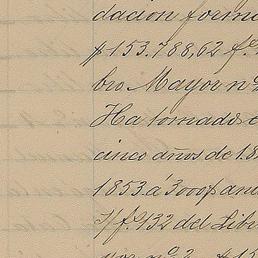 dación form
$153.788,62 f.
bro Mayor nº
Ha tomado
cinco años de 18
1853 á 3000$ an
f. 132 del Libr
yor nº 2. $15